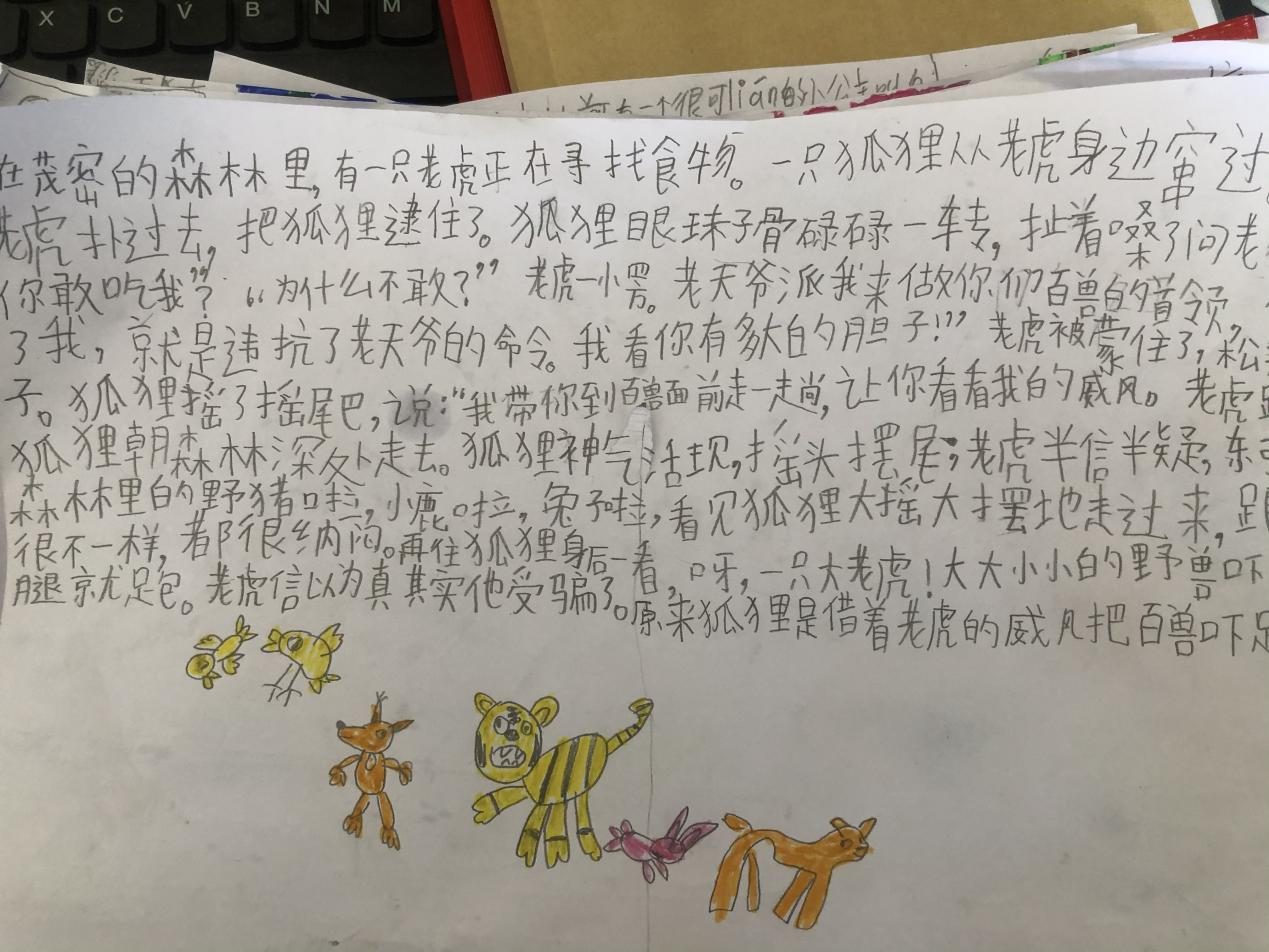 X C V B N M
一个很可lián的小公主
在茂密的森林里,有一只老虎正在寻找食物。一只狐狸从老虎身边窜过。
老虎扑过去,把狐狸逮住了。狐狸眼珠子骨碌碌一转,扯着嗓子问老
你敢吃我”?“为什么不敢?”老虎一小愣。老天爷派我来做你们百兽的首领,
了我,就是违抗了老天爷的命令。我看你有多大的胆子!”老虎被蒙住了,松
子。狐狸摇了摇尾巴,说:“我带你到百兽面前走一走尚,让你看看我的威风。老虎跟
狐狸朝森林深处走去。狐狸神气活现,摇头摆尾;老虎半信半疑,东
森林里的野猪啦,小鹿啦,兔子啦,看见狐狸大摇大摆地走过来,跟
很不一样,都很纳闷。再住狐狸身后一看,呀,一只大老虎!大大小小的野兽吓
腿就跑。老虎信以为真其实他受骗了。原来狐狸是借着老虎的威风把百兽吓跑